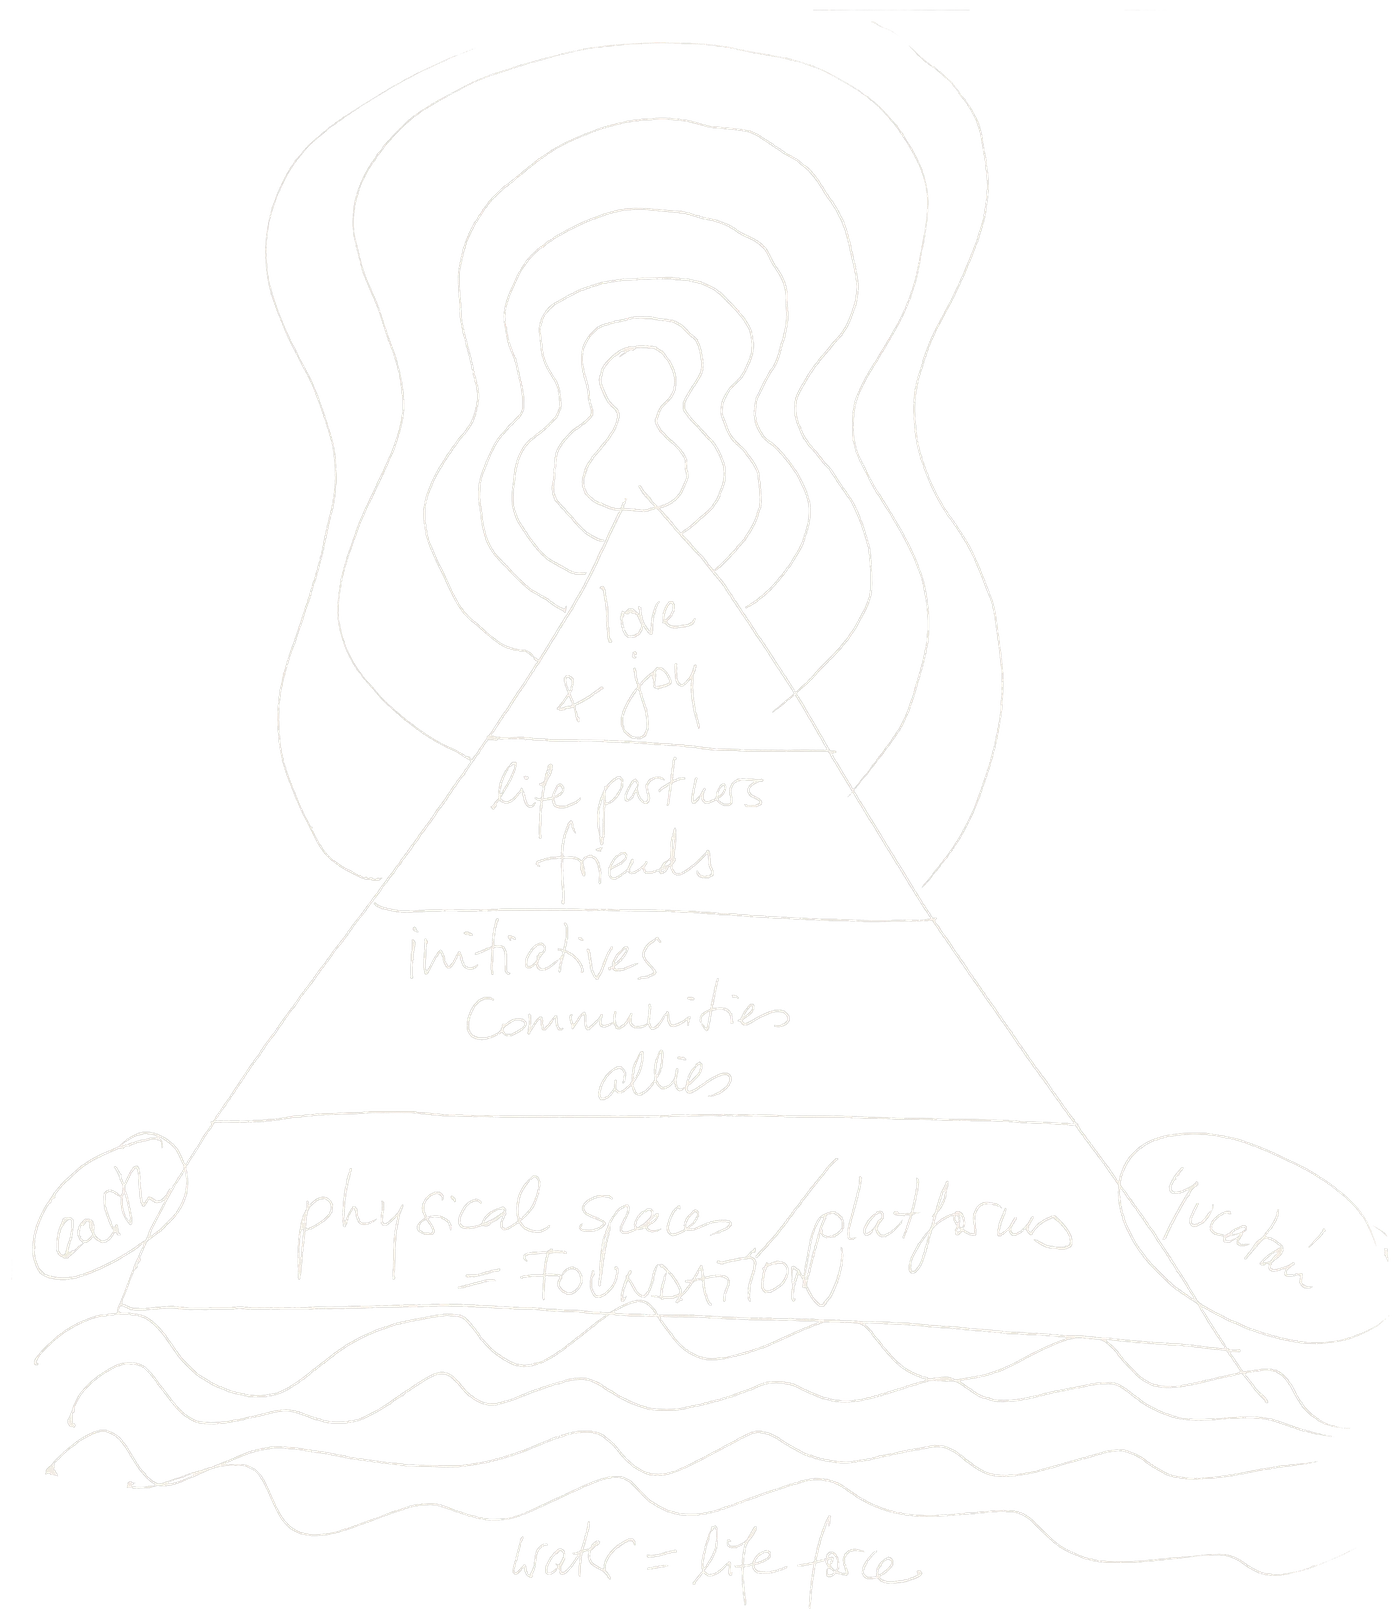 love
& joy
life partners
friends
initiatives
Communities
allies
earth
Yucatán
physical spaces / platforms
= FOUNDATION
water = life force